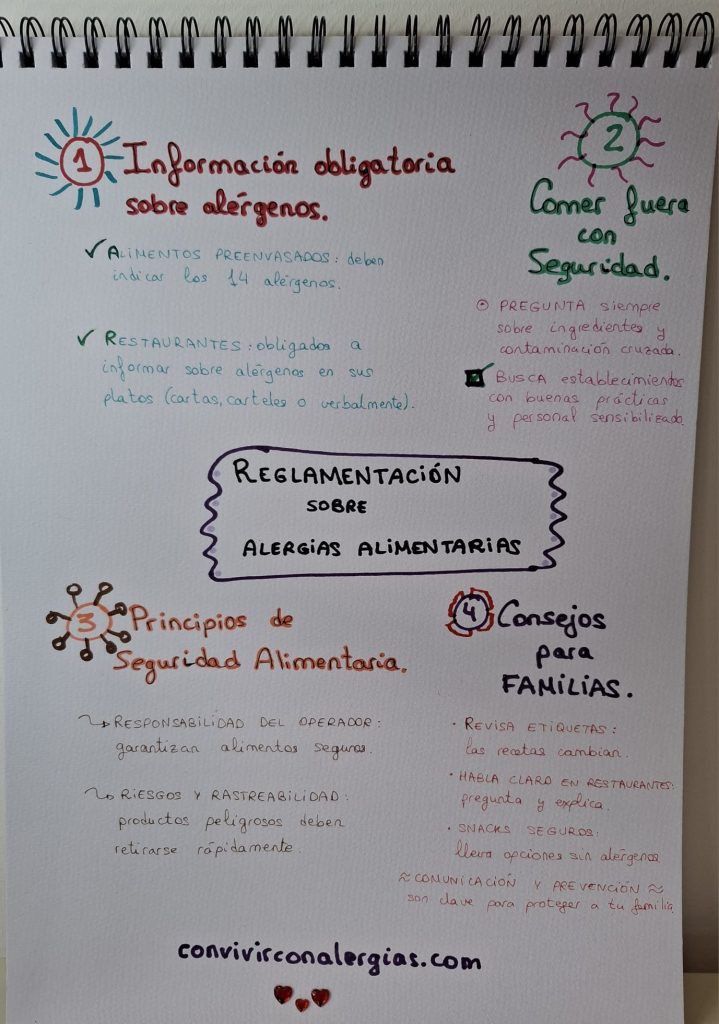 1 Información obligatoria
sobre alérgenos.
✓ ALIMENTOS PREENVASADOS: deben
indicar los 14 alérgenos.
✓ RESTAURANTES: obligados a
informar sobre alérgenos en sus
platos (cartas, carteles o verbalmente).
2
Comer fuera
con
Seguridad.
PREGUNTA siempre
sobre ingredientes y
contaminación cruzada.
BUSCA establecimientos
con buenas prácticas
y personal sensibilizado
REGLAMENTACIÓN
SOBRE
ALERGIAS ALIMENTARIAS
3 Principios de
Seguridad Alimentaria.
RESPONSABILIDAD DEL OPERADOR:
garantizan alimentos seguros.
RIESGOS Y RASTREABILIDAD:
productos peligrosos deben
retirarse rápidamente.
4 Consejos
para
FAMILIAS.
· REVISA ETIQUETAS:
las recetas cambian.
· HABLA CLARO EN RESTAURANTES:
pregunta y explica.
· SNACKS SEGUROS:
lleva opciones sin alérgenos
≈ COMUNICACIÓN Y PREVENCIÓN ≈
son clave para proteger a tu familia.
convivirconalergias.com